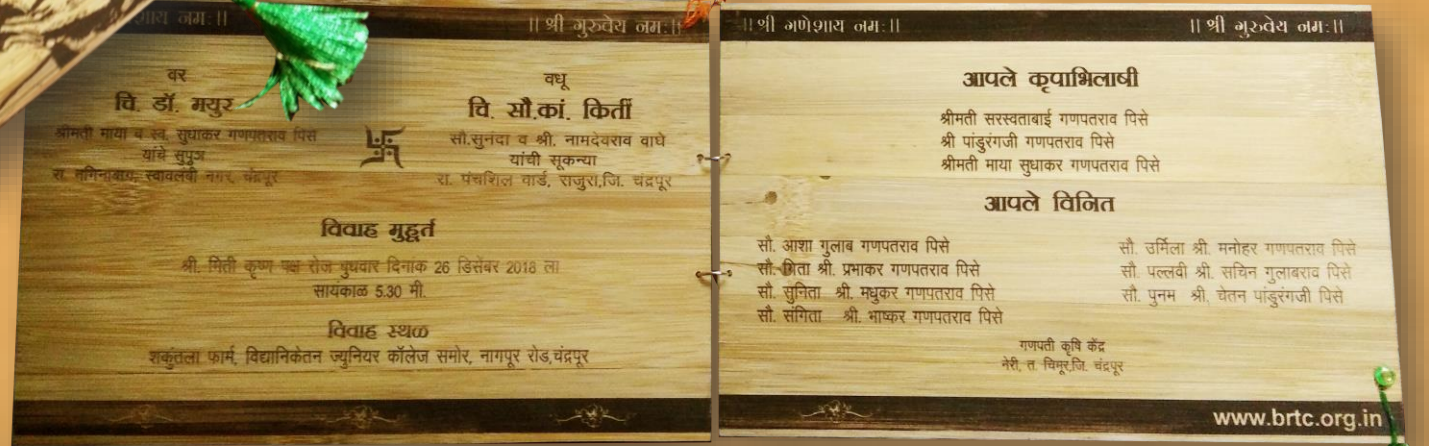 गणेशाय नमः||
|| श्री गुरुवेय नमः||
वर
चि. डॉ. मयुर
श्रीमती माया व स्व. सुधाकर गणपतराव पिसे
यांचे सुपुत्र
रा. स्वावलंबी नगर, चंद्रपूर
वधू
चि. सौ.कां. किर्ती
सौ.सुनंदा व श्री. नामदेवराव वाघे
यांची सूकन्या
रा. पंचशिल वार्ड, राजुरा,जि. चंद्रपूर
विवाह मुहूर्त
श्री. मिती कृष्ण पक्ष रोज बुधवार दिनांक 26 डिसेंबर 2018 ला
सायंकाळ 5.30 मी.
विवाह स्थळ
शकुंतला फार्म, विद्यानिकेतन ज्युनियर कॉलेज समोर, नागपूर रोड,चंद्रपूर
|| श्री गणेशाय नमः||
|| श्री गुरुवेय नमः||
आपले कृपाभिलाषी
श्रीमती सरस्वताबाई गणपतराव पिसे
श्री पांडुरंगजी गणपतराव पिसे
श्रीमती माया सुधाकर गणपतराव पिसे
आपले विनित
सौ. आशा गुलाब गणपतराव पिसे
सौ. गिता श्री. प्रभाकर गणपतराव पिसे
सौ. सुनिता श्री. मधुकर गणपतराव पिसे
सौ. संगिता श्री. भाष्कर गणपतराव पिसे
सौ. उर्मिला श्री. मनोहर गणपतराव पिसे
सौ. पल्लवी श्री. सचिन गुलाबराव पिसे
सौ. पुनम श्री, चेतन पांडुरंगजी पिसे
गणपती कृषि केंद्र
नेरी, त. चिमूर,जि. चंद्रपूर
www.brtc.org.in